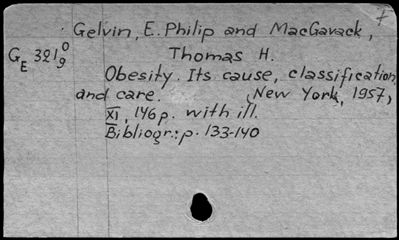 7
Gelvin, E. Philip and MacGavack,
GE 321 0/9 Thomas H.
Obesity. Its cause, classification
and care. (New York, 1957,
XI, 146 p. with ill.
Bibliogr.: p. 133-140